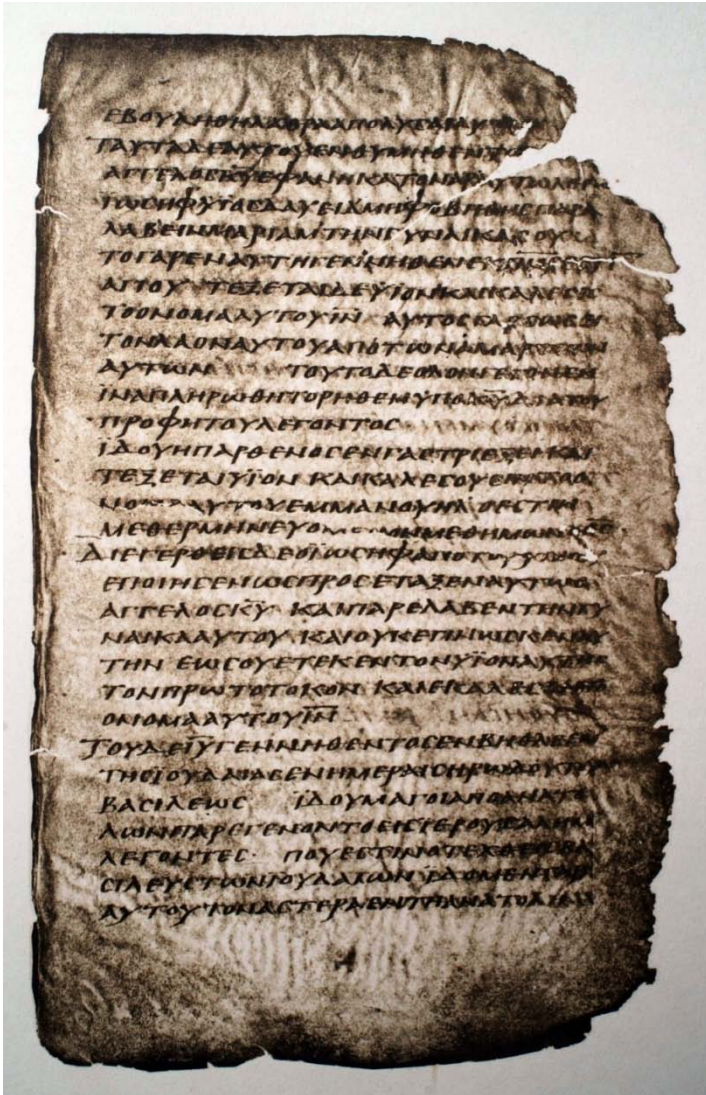 ΕΒΟΥΛΗΘΗΛΑΘΡΑΑΠΟΛΥϹΑΙΑΥ
ΤΑΥΤΑΔΕΑΥΤΟΥΕΝΘΥΜΗΘΕΝΤΟ
ΑΓΓΕΛΟϹΚ̅Υ̅ΕΦΑΝΗΚΑΤΟΝΑΡΑΥΤΩ
ΪΩϹΗΦΥΙΟϹΔΑΥΕΙΔΜΗΦΟΒΗΘΗϹΠΑΡΑ
ΛΑΒΕΙΝΜΑΡΙΑΜΤΗΝΓΥΝΑΙΚΑϹΟΥ
ΤΟΓΑΡΕΝΑΥΤΗΓΕΝΝΗΘΕΝΕΚ
ΑΓΙΟΥ ΤΕΞΕΤΑΙΔΕΥΪΟΝΚΑΙΚΑΛΕϹΕΙϹ
ΤΟΟΝΟΜΑΑΥΤΟΥΙ̅Ν̅ ΑΥΤΟϹΓΑΡϹΩϹΕΙ
ΤΟΝΛΑΟΝΑΥΤΟΥΑΠΟΤΩΝΑΜΑΡΤΙΩΝ
ΑΥΤΩΝ ΤΟΥΤΟΔΕΟΛΟΝΓΕΓΟΝΕΝ
ΪΝΑΠΛΗΡΩΘΗΤΟΡΗΘΕΝΥΠΟΚ̅Υ̅ΔΙΑΤΟΥ
ΠΡΟΦΗΤΟΥΛΕΓΟΝΤΟϹ
ΪΔΟΥΗΠΑΡΘΕΝΟϹΕΝΓΑϹΤΡΙΕΞΕΙΚΑΙ
ΤΕΞΕΤΑΙΥΪΟΝ ΚΑΙΚΑΛΕϹΟΥϹΙΝΤΟΟ
ΝΟΜΑΑΥΤΟΥΕΜΜΑΝΟΥΗΛ ΟΕϹΤΙΝ
ΜΕΘΕΡΜΗΝΕΥΟΜΕΝΟΝΜΕΘΗΜΩΝΟΘ̅Ϲ̅
ΔΙΕΓΕΡΘΕΙϹΔΕΟΪΩϹΗΦΑΠΟΤΟΥΥΠΝΟΥ
ΕΠΟΙΗϹΕΝΩϹΠΡΟϹΕΤΑΞΕΝΑΥΤΩΟ
ΑΓΓΕΛΟϹΚ̅Υ̅ ΚΑΙΠΑΡΕΛΑΒΕΝΤΗΝΓΥ
ΝΑΙΚΑΑΥΤΟΥ ΚΑΙΟΥΚΕΓΙΝΩϹΚΕΝΑΥ
ΤΗΝ ΕΩϹΟΥΕΤΕΚΕΝΤΟΝΥΪΟΝΑΥΤΗϹ
ΤΟΝΠΡΩΤΟΤΟΚΟΝ ΚΑΙΕΚΑΛΕϹΕΝΤΟ
ΟΝΟΜΑΑΥΤΟΥΙ̅Ν̅
ΤΟΥΔΕΙ̅Υ̅ΓΕΝΝΗΘΕΝΤΟϹΕΝΒΗΘΛΕΕΜ
ΤΗϹΪΟΥΔΑΙΑϹΕΝΗΜΕΡΑΙϹΗΡΩΔΟΥΤΟΥ
ΒΑϹΙΛΕΩϹ ΪΔΟΥΜΑΓΟΙΑΠΟΑΝΑΤΟ
ΛΩΝΠΑΡΕΓΕΝΟΝΤΟΕΙϹΪΕΡΟΥϹΑΛΗΜ
ΛΕΓΟΝΤΕϹ· ΠΟΥΕϹΤΙΝΟΤΕΧΘΕΙϹΒΑ
ϹΙΛΕΥϹΤΩΝΪΟΥΔΑΙΩΝ ΕΙΔΟΜΕΝΓΑΡ
ΑΥΤΟΥΤΟΝΑϹΤΕΡΑΕΝΤΗΑΝΑΤΟΛΗ